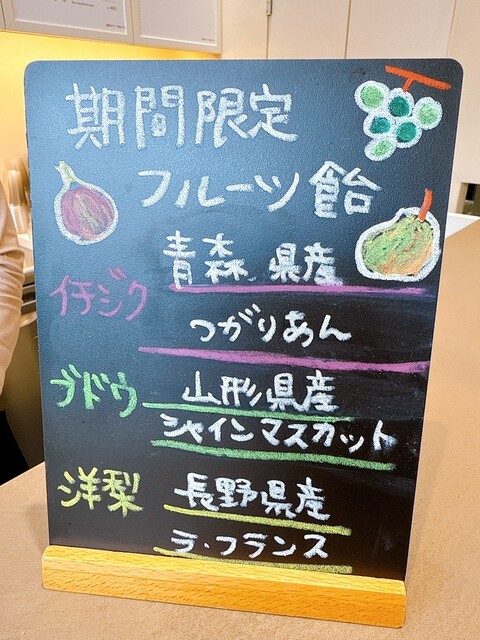 期間限定
フルーツ飴
イチジク
青森県産
つがりあん
ブドウ
山形県産
シャインマスカット
洋梨
長野県産
ラ・フランス